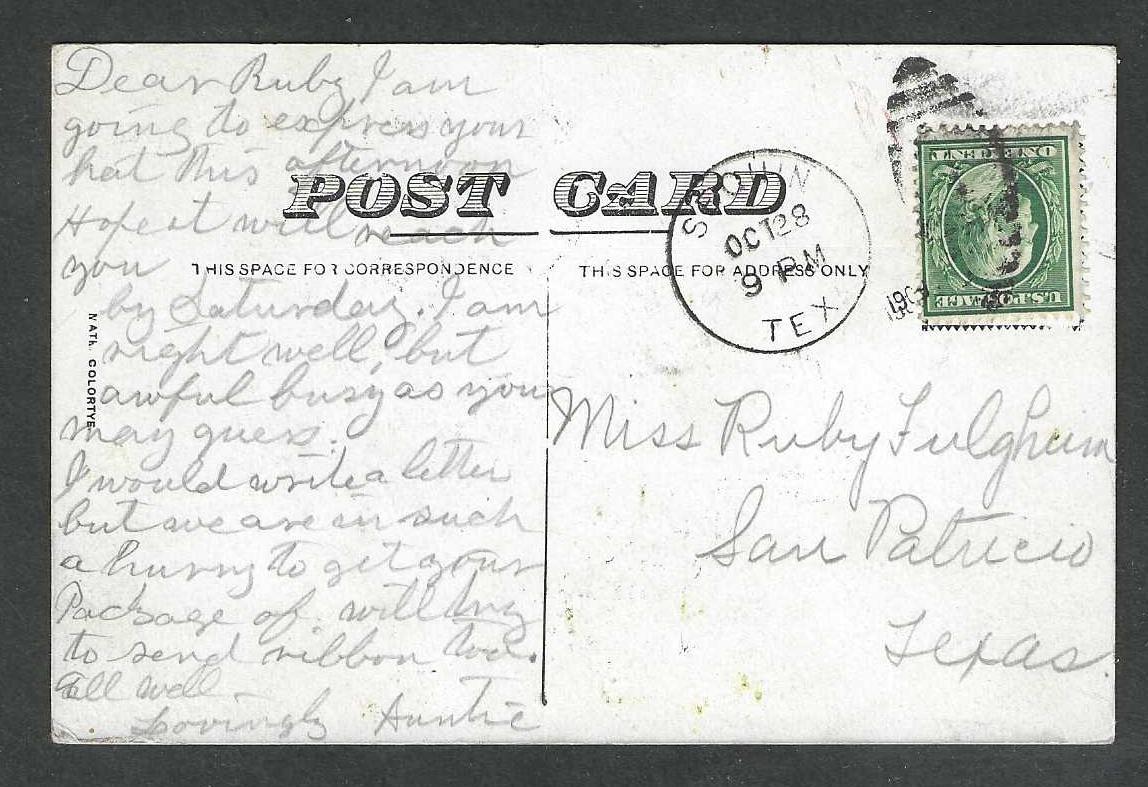 Dear Ruby I am
going to express your
hat this afternoon
Hope it will reach
you
by Saturday. I am
right well, but
awful busy as you
may guess.
I would write a letter
but we are in such
a hurry to get your
Package of. will try
to send ribbon too.
All well
Lovingly Auntie
POST CARD
THIS SPACE FOR CORRESPONDENCE
THIS SPACE FOR ADDRESS ONLY
NATL COLORTYPE
SEGUIN
OCT 28
9 PM
TEX
190
U.S. POSTAGE
ONE CENT
Miss Ruby Fulghum
San Patricio
Texas.